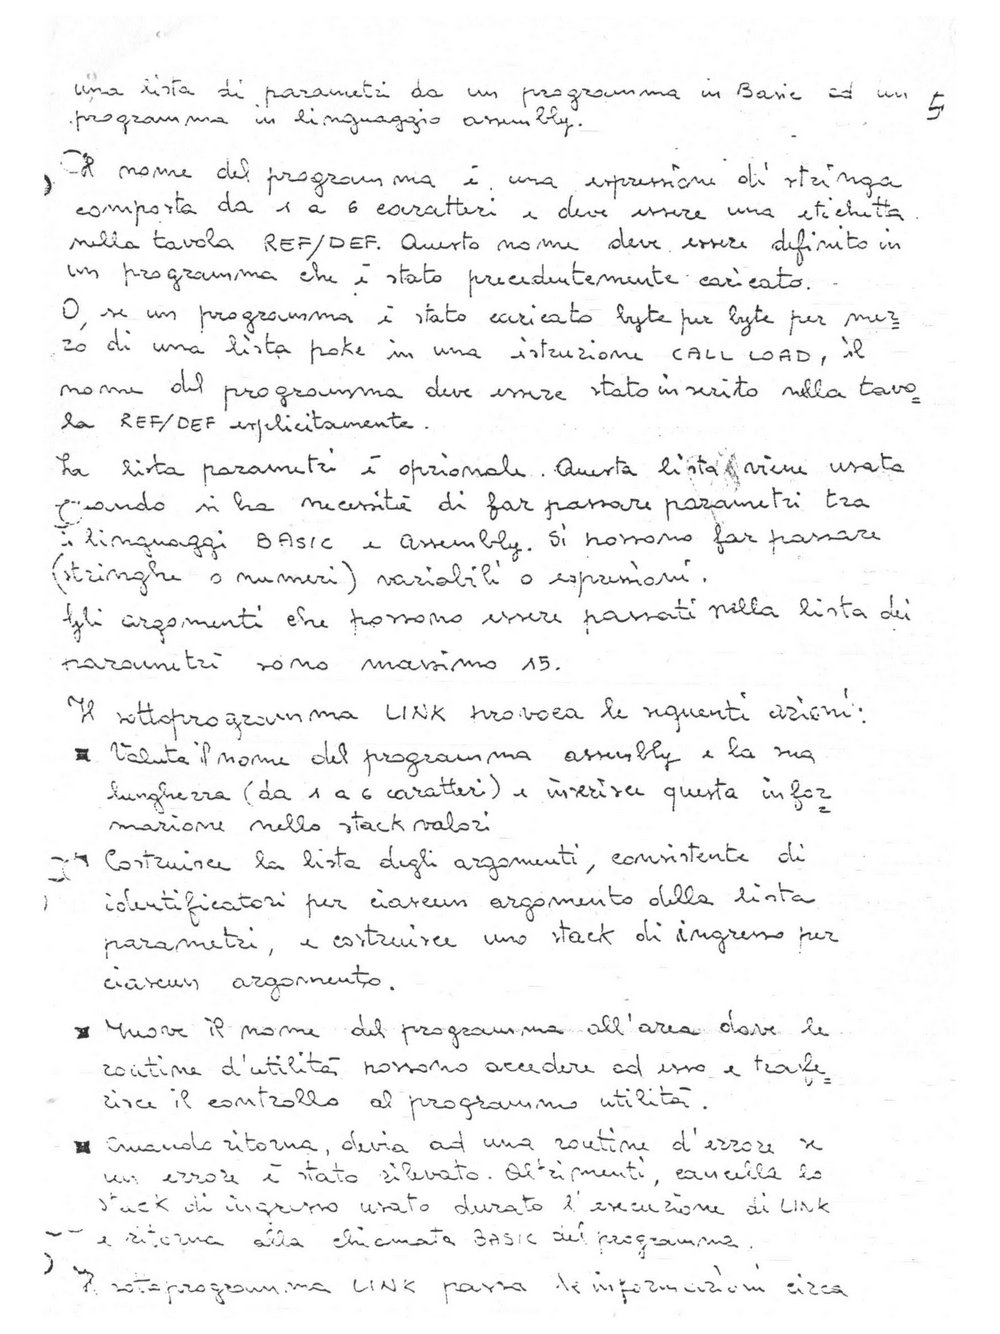 una lista di parametri da un programma in Basic ad un 5
programma in linguaggio assembly.
Il nome del programma è una espressione di stringa
composta da 1 a 6 caratteri e deve essere una etichetta
nella tavola REF/DEF. Questo nome deve essere definito in
un programma che è stato precedentemente caricato.
O, se un programma è stato caricato byte per byte per mez=
zo di una lista poke in una istruzione CALL LOAD, il
nome del programma deve essere stato inserito nella tavo=
la REF/DEF esplicitamente.
La lista parametri è opzionale. Questa lista viene usata
quando si ha necessità di far passare parametri tra
i linguaggi BASIC e Assembly. Si possono far passare
(stringhe o numeri) variabili o espressioni.
Gli argomenti che possono essere passati nella lista dei
parametri sono massimo 15.
Il sottoprogramma LINK provoca le seguenti azioni:
▪ Valuta il nome del programma assembly e la sua
lunghezza (da 1 a 6 caratteri) e inserisce questa infor=
mazione nello stack valori
Costruisce la lista degli argomenti, consistente di
identificatori per ciascun argomento della lista
parametri, e costruisce uno stack di ingresso per
ciascun argomento.
▪ Muove il nome del programma all'area dove le
routine d'utilità possono accedere ad esso e trasfe=
risce il controllo al programma utilità.
▪ Quando ritorna, devia ad una routine d'errore se
un errore è stato rilevato. Altrimenti, cancella lo
stack di ingresso usato durato l'esecuzione di LINK
e ritorna alla chiamata BASIC del programma.
Il sotoprogramma LINK passa le informazioni circa